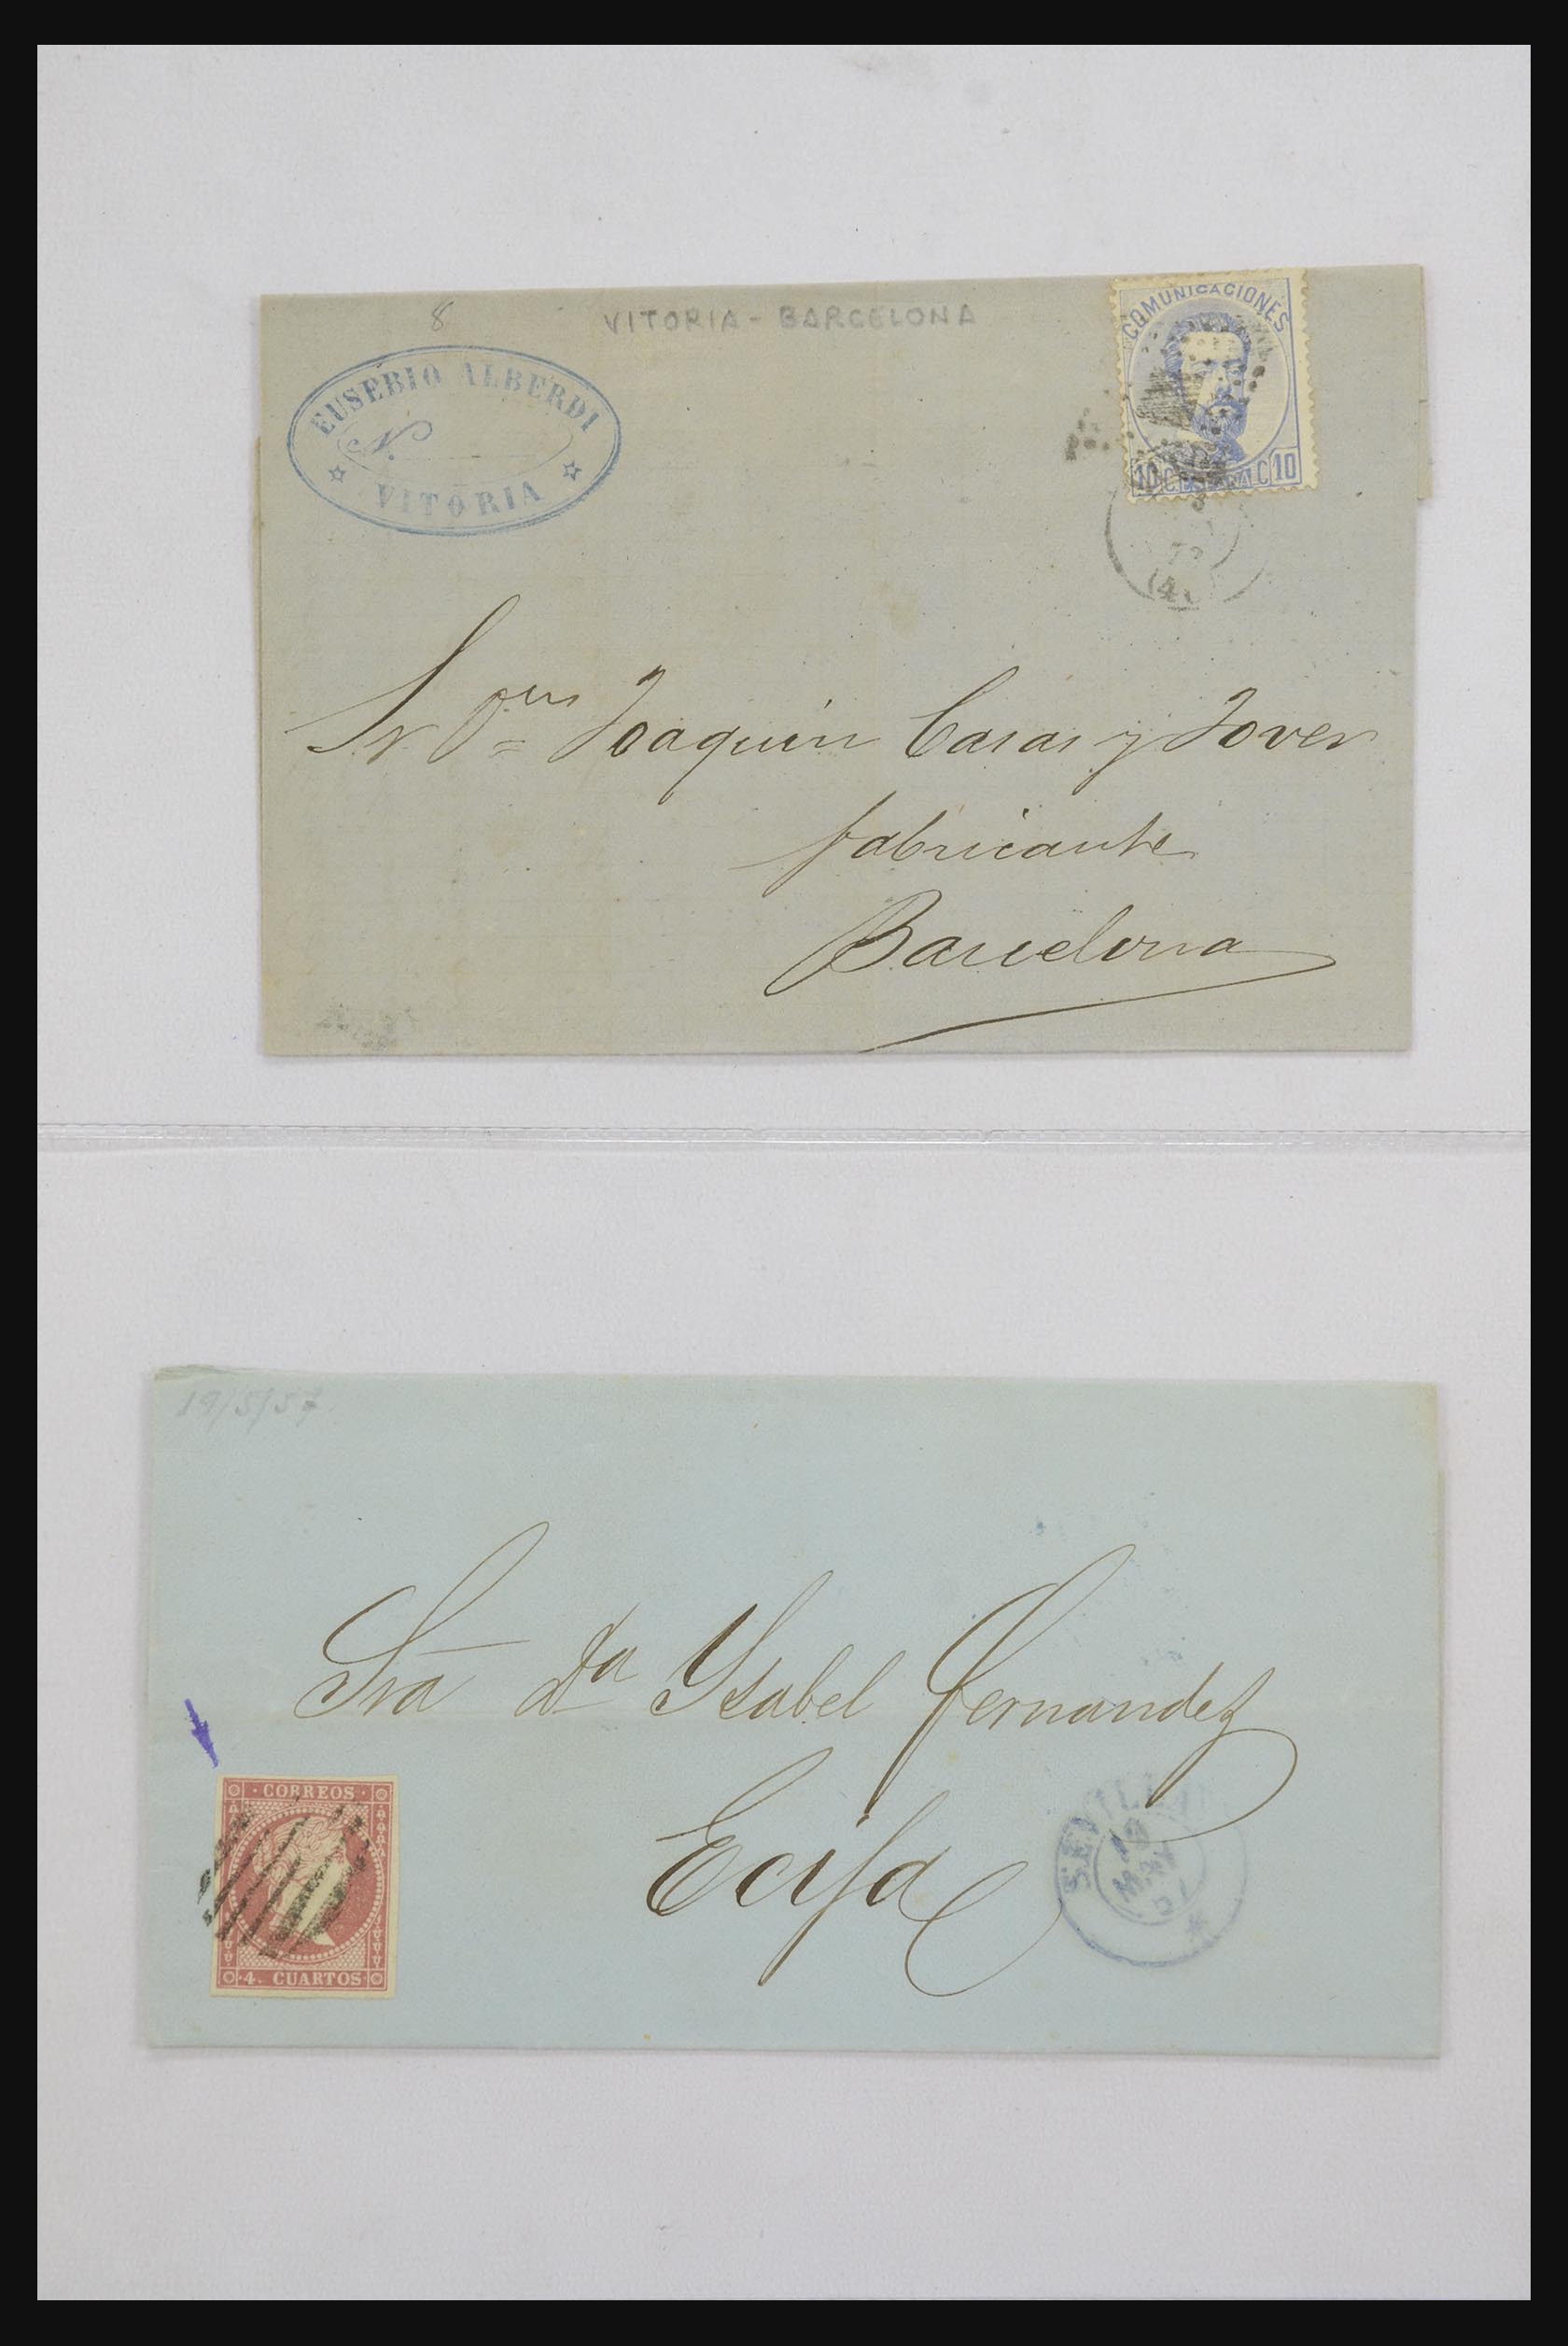 8
VITORIA - BARCELONA
EUSEBIO ALBERDI
N.
VITORIA
COMUNICACIONES
10 C. ESPAÑA C 10
Sr Dn Joaquin Casas y Jover
fabricante
Barcelona
19/5/57
Sra Da Ysabel Fernandez
Ecija
CORREOS
4. CUARTOS
SEVILLA
19
MAY